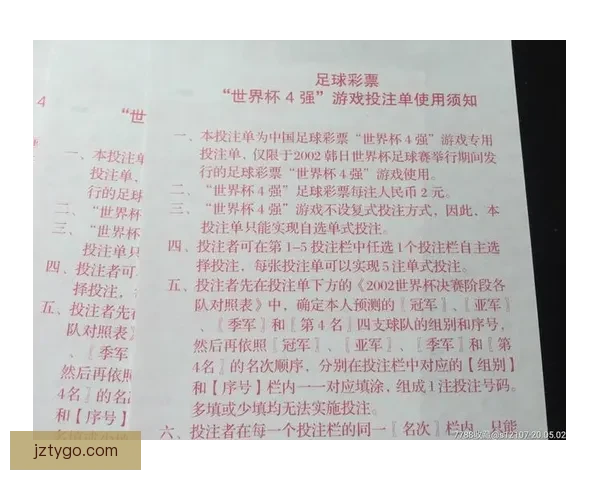 足球彩票
“世界杯 4 强”游戏投注单使用须知
一、本投注单为中国足球彩票“世界杯 4 强”游戏专用
投注单，仅限于2002 韩日世界杯足球赛举行期间发
行的足球彩票“世界杯 4 强”游戏使用。
二、“世界杯 4 强”足球彩票每注人民币 2 元。
三、“世界杯 4 强”游戏不设复式投注方式，因此，本
投注单只能实现自选单式投注。
四、投注者可在第 1-5 投注栏中任选1个投注栏自主选
择投注，每张投注单可以实现5 注单式投注。
五、投注者先在投注单下方的《2002世界杯决赛阶段各
队对照表》中，确定本人预测的〖冠军〗、〖亚军〗
、〖季军〗和〖第 4 名〗四支球队的组别和序号，
然后再依照〖冠军〗、〖亚军〗、〖季军〗和〖第
4名〗的名次顺序，分别在投注栏中对应的【组别】
和【序号】栏内一一对应填涂，组成1注投注号码。
多填或少填均无法实施投注。
六、投注者在每一个投注栏的同一〖名次〗栏内，只能
4
“世
一、本投注单
投注单，
行的足球
二、“世界杯
三、“世界杯
投注单只
四、投注者可
择投注，
五、投注者先在
队对照表》
、〖季军
然后再依照
4名〗的名
和【序号】
7788收藏@s12107-20.05.02
jztygo.com